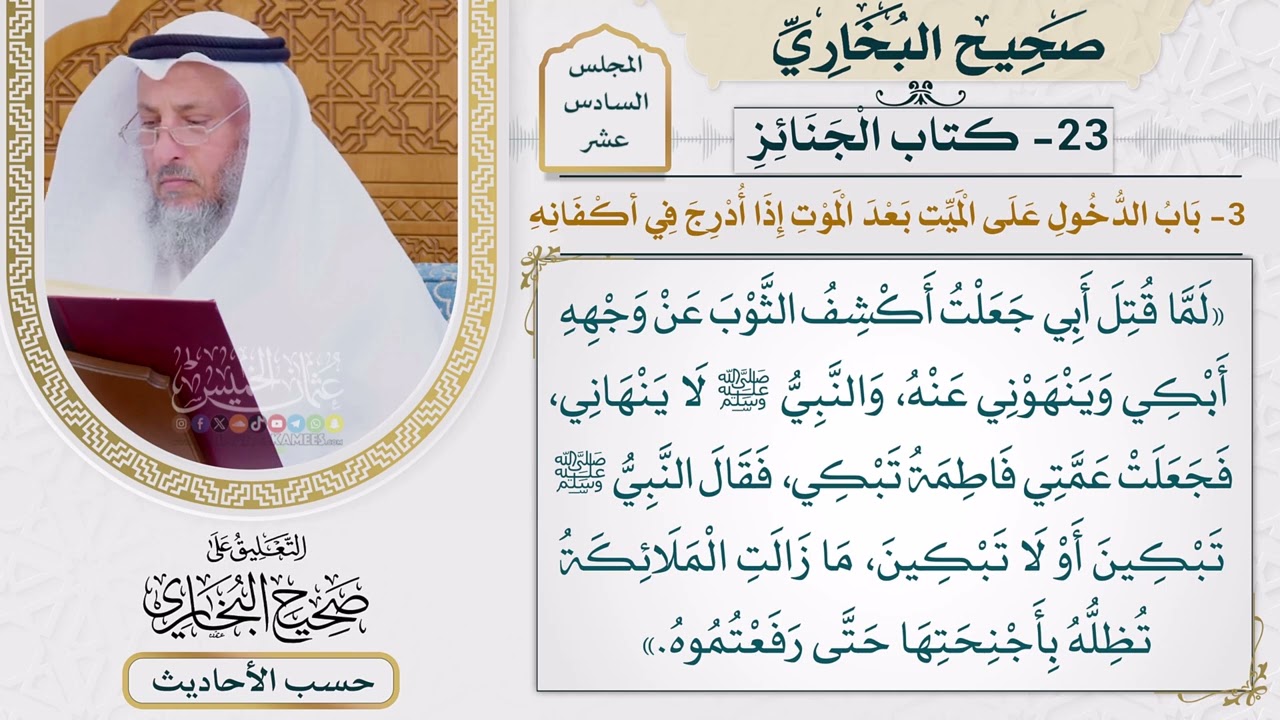 صَحِيح البُخَارِيِّ
المجلس
السادس
عشر
23- كتاب الْجَنَائِزِ
3- بَابُ الدُّخُولِ عَلَى الْمَيِّتِ بَعْدَ الْمَوْتِ إِذَا أُدْرِجَ فِي أكْفَانِهِ
«لَمَّا قُتِلَ أَبِي جَعَلْتُ أَكْشِفُ الثَّوْبَ عَنْ وَجْهِهِ
أَبْكِي وَيَنْهَوْنِي عَنْهُ، وَالنَّبِيُّ ﷺ لَا يَنْهَانِي،
فَجَعَلَتْ عَمَّتِي فَاطِمَةُ تَبْكِي، فَقَالَ النَّبِيُّ ﷺ
تَبْكِينَ أَوْ لَا تَبْكِينَ، مَا زَالَتِ الْمَلَائِكَةُ
تُظِلُّهُ بِأَجْنِحَتِهَا حَتَّى رَفَعْتُمُوهُ.»
عثمان الخميس
التَّعْلِيقُ عَلَى
صَحِيحِ البُخَارِيِّ
حسب الأحاديث